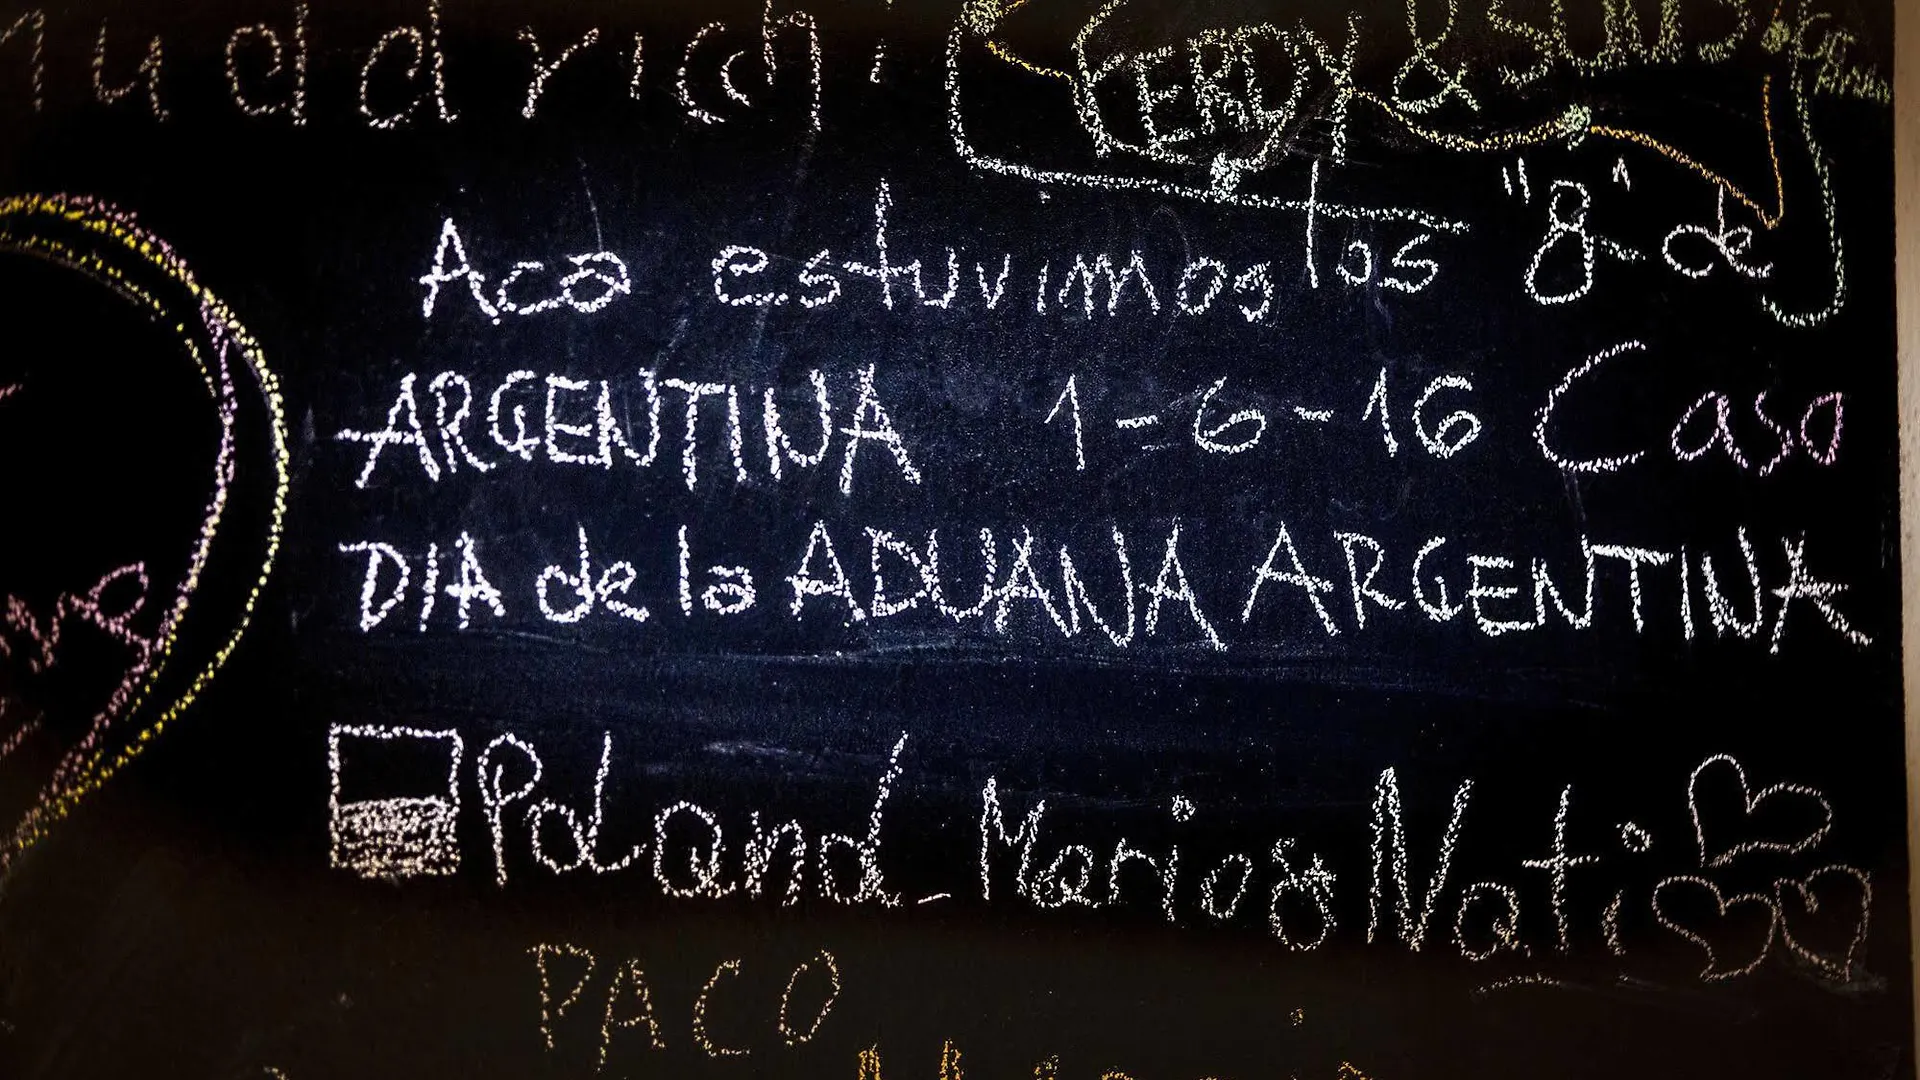 CERDY &
Aca estuvimos los "8" de
ARGENTINA 1-6-16 Casa
DIA de la ADUANA ARGENTINA
Poland - Mario & Nati
PACO